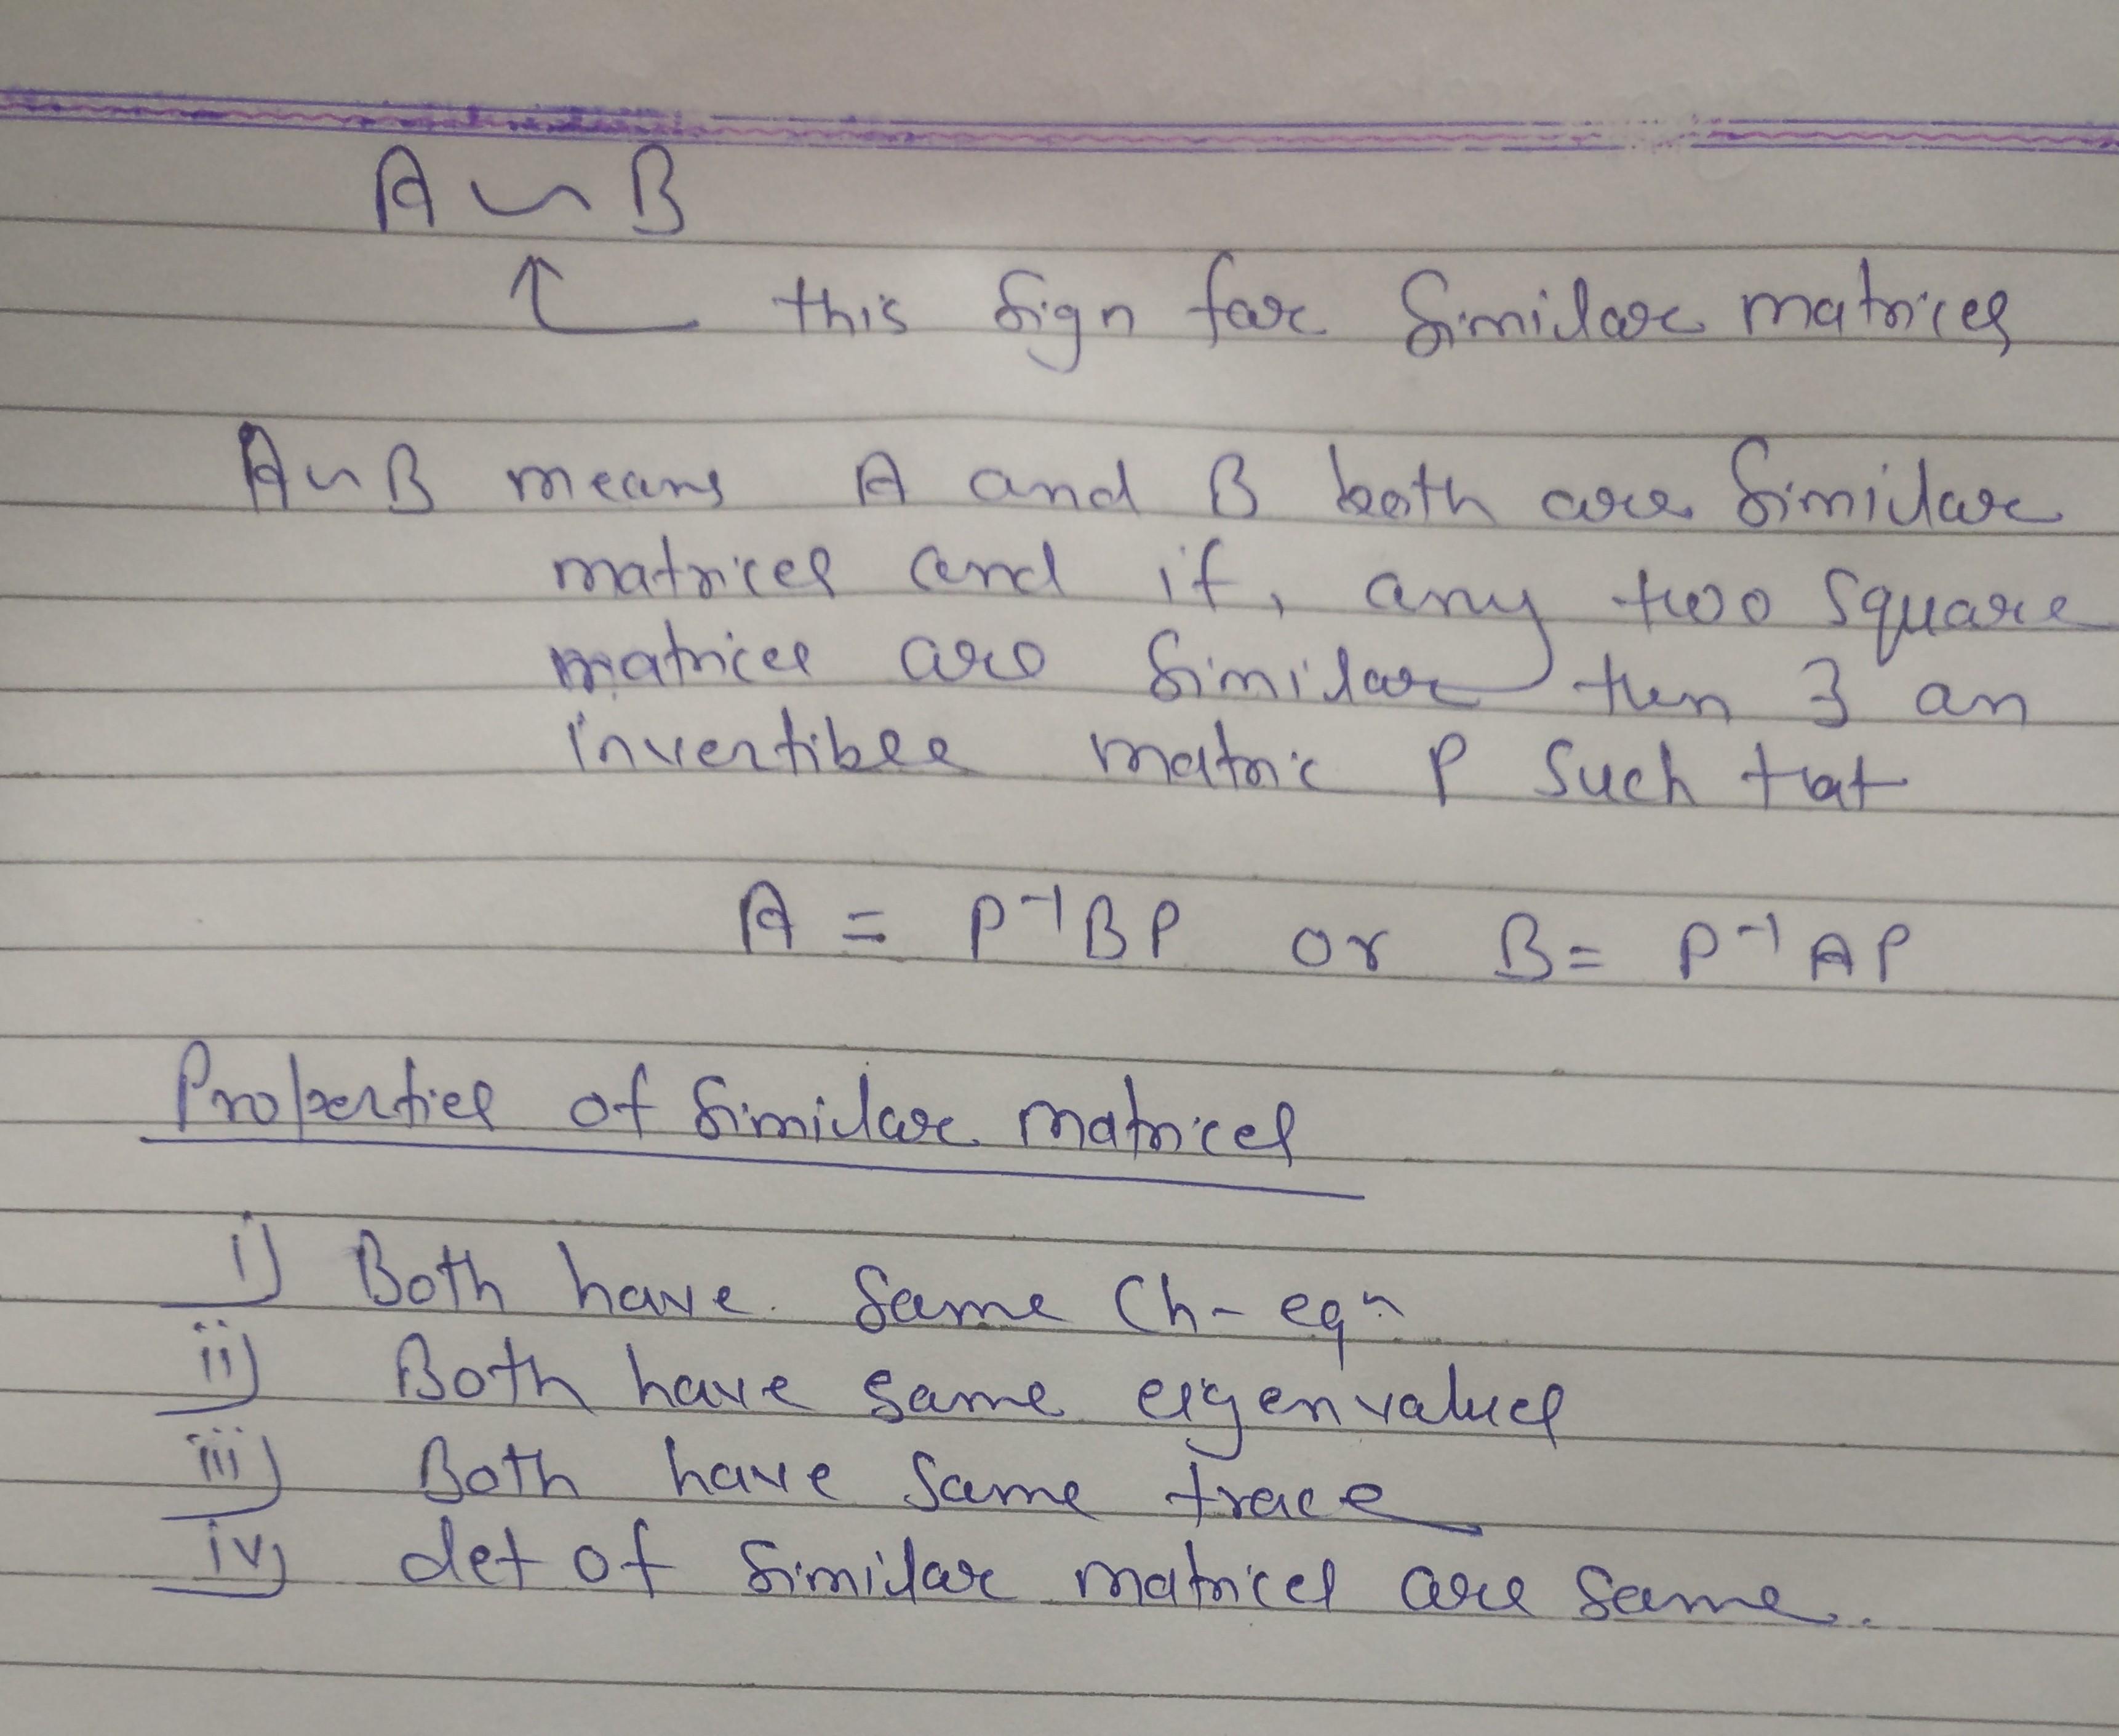 A ~ B
↑ this sign for similar matrices
A ~ B means A and B both are similar
matrices and if, any two square
matrices are similar then ∃ an
invertible matric P such that
A = P⁻¹BP or B = P⁻¹AP
Properties of similar matrices
i) Both have same Ch-eqⁿ
ii) Both have same eigenvalues
iii) Both have same trace
iv) det of similar matrices are same.